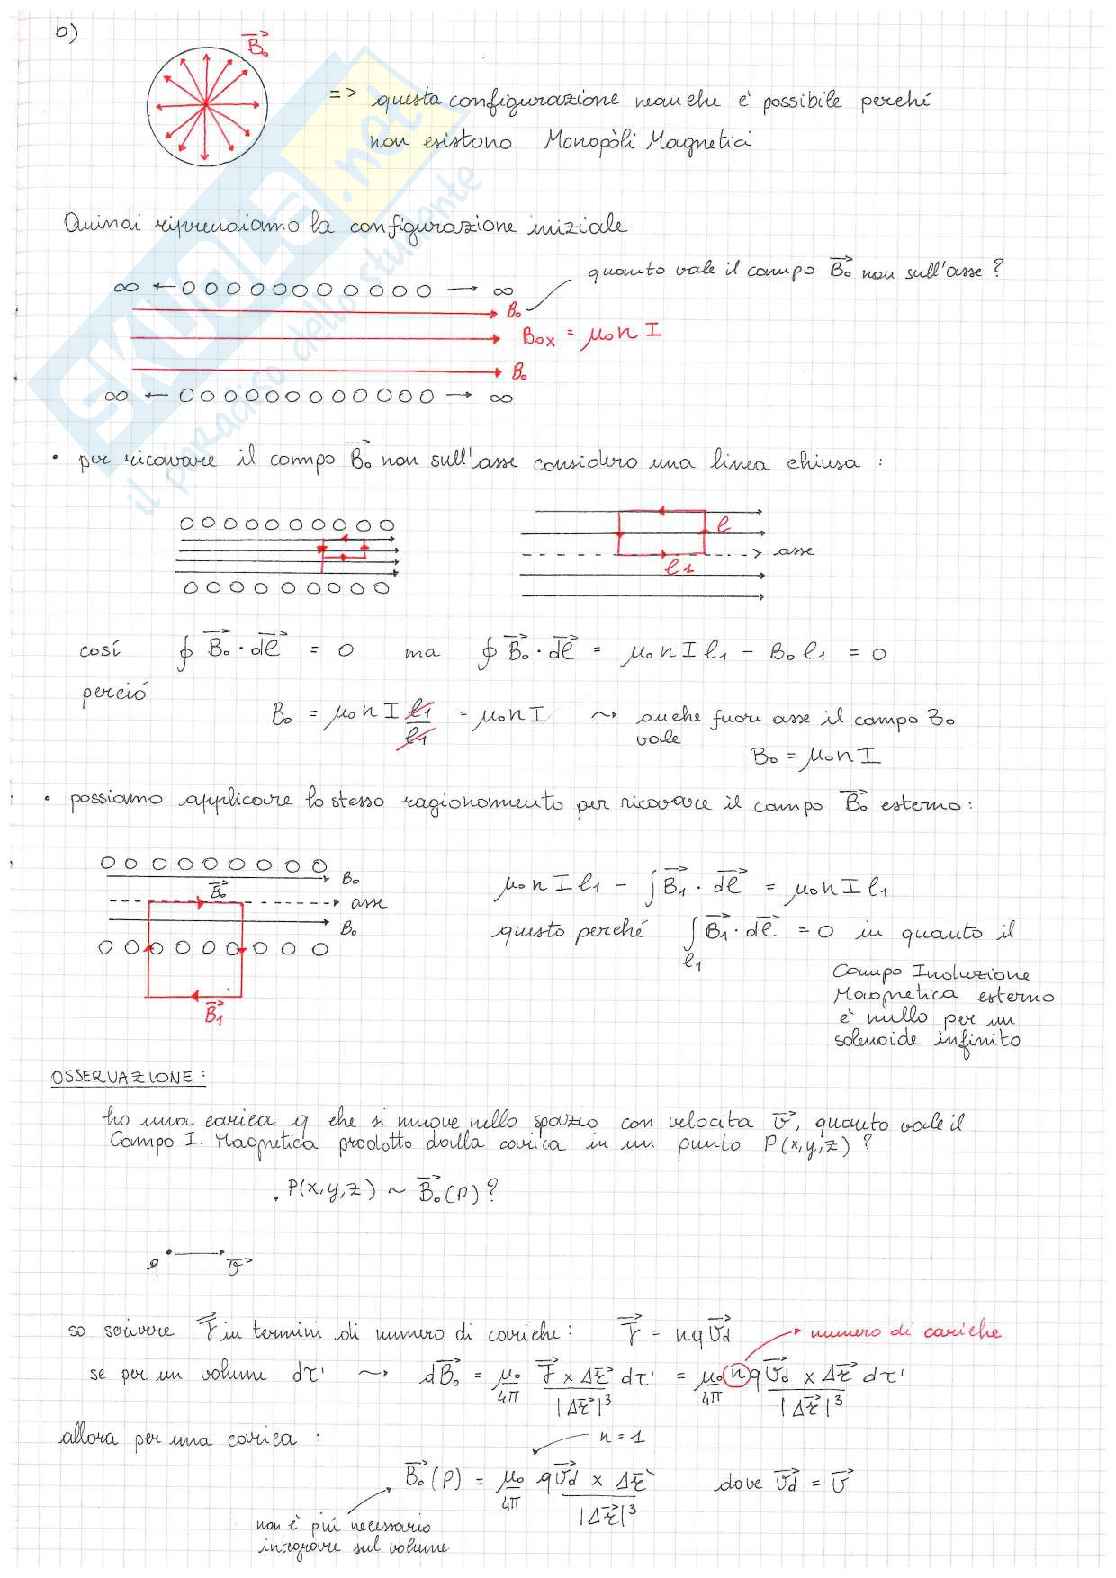 b)
B₀
=> questa configurazione neanche è possibile perché
non esistono Monopòli Magnetici
Quindi riprendiamo la configurazione iniziale
quanto vale il campo B₀ non sull'asse?
∞ ← ○○○○○○○○○○○ → ∞
B₀
B₀x = μ₀ n I
B₀
∞ ← ○○○○○○○○○○○ → ∞
• per ricavare il campo B₀ non sull'asse considero una linea chiusa :
l
asse
l₁
così ∮ B₀ · dl = 0 ma ∮ B₀ · dl = μ₀ n I l₁ - B₀ l₁ = 0
perciò
B₀ = μ₀ n I l₁/l₁ = μ₀ n I ~> anche fuori asse il campo B₀
vale
B₀ = μ₀ n I
• possiamo applicare lo stesso ragionamento per ricavare il campo B₀ esterno:
B₀
B₀
asse
B₀
B₁
μ₀ n I l₁ - ∫ B₁ · dl = μ₀ n I l₁
questo perché ∫ B₁ · dl = 0 in quanto il
l₁
Campo Induzione
Magnetica esterno
è nullo per un
solenoide infinito
OSSERVAZIONE :
ho una carica q che si muove nello spazio con velocità v, quanto vale il
Campo I. Magnetica prodotto dalla carica in un punto P(x,y,z)?
. P(x,y,z) ~ B₀(P)?
v
so scrivere J in termini di numero di cariche : J = nqvd
numero di cariche
se per un volume dτ' ~> dB₀ = μ₀/4π J × Δr/|Δr|³ dτ' = μ₀/4π n q v₀ × Δr/|Δr|³ dτ'
allora per una carica :
n = 1
B₀(P) = μ₀/4π q vd × Δr/|Δr|³ dove vd = v
non è più necessario
integrare sul volume
SKUOLA.net
il paradiso dello studente